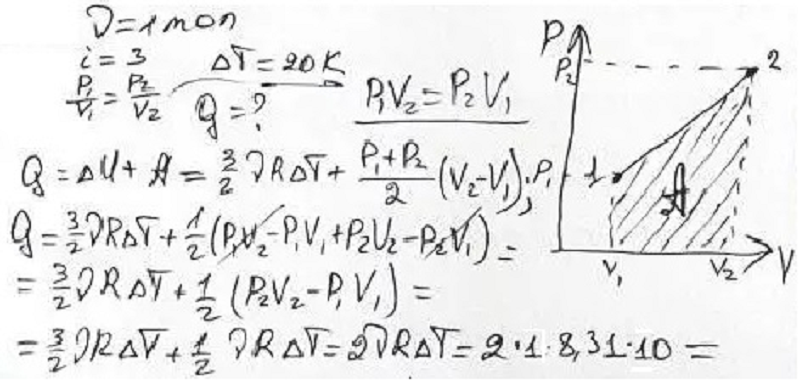 ν = 1 моль
i = 3
ΔT = 20 K
P₁/V₁ = P₂/V₂
Q = ?
P₁V₂ = P₂V₁
Q = ΔU + A = 3/2 νRΔT + (P₁+P₂)/2 (V₂-V₁);
Q = 3/2 νRΔT + 1/2 (P₁V₂ - P₁V₁ + P₂V₂ - P₂V₁) =
= 3/2 νRΔT + 1/2 (P₂V₂ - P₁V₁) =
= 3/2 νRΔT + 1/2 νRΔT = 2νRΔT = 2·1·8,31·10 =
P
P₂
2
P₁
1
A
V₁
V₂
V